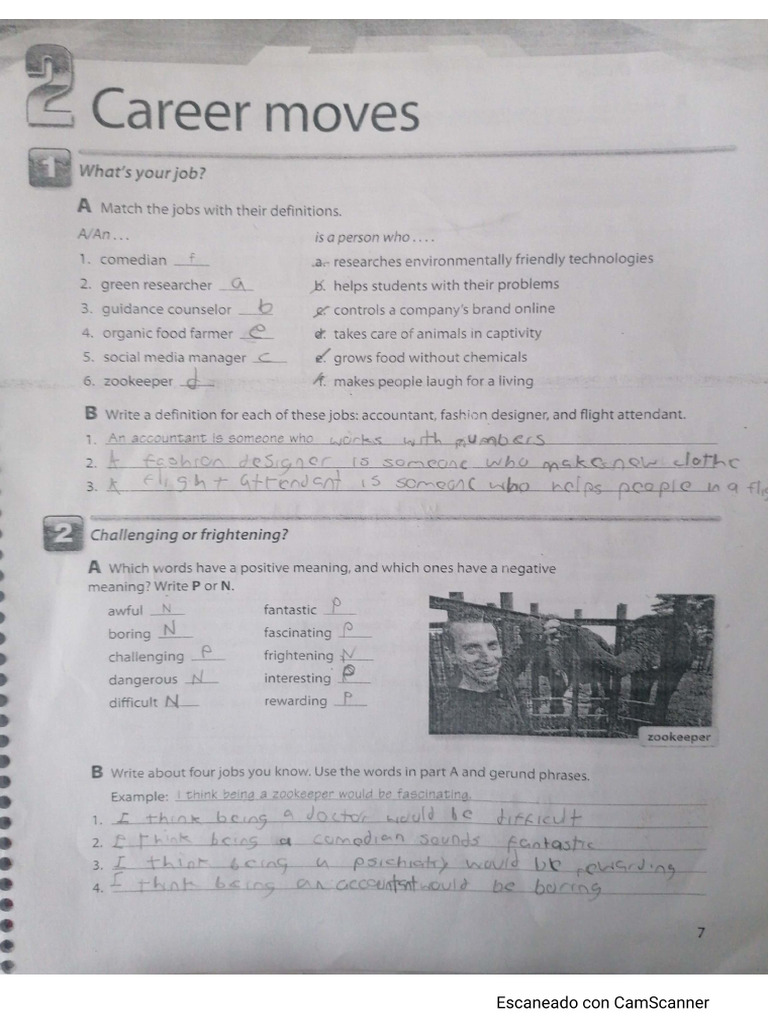 2 Career moves
1 What's your job?
A Match the jobs with their definitions.
A/An ... is a person who ....
1. comedian f a. researches environmentally friendly technologies
2. green researcher a b. helps students with their problems
3. guidance counselor b c. controls a company's brand online
4. organic food farmer e d. takes care of animals in captivity
5. social media manager c e. grows food without chemicals
6. zookeeper d f. makes people laugh for a living
B Write a definition for each of these jobs: accountant, fashion designer, and flight attendant.
1. An accountant is someone who works with numbers
2. A fashion designer is someone who make new clothe
3. A flight attendant is someone who helps people in a flig
2 Challenging or frightening?
A Which words have a positive meaning, and which ones have a negative
meaning? Write P or N.
awful N fantastic P
boring N fascinating P
challenging P frightening N
dangerous N interesting P
difficult N rewarding P
zookeeper
B Write about four jobs you know. Use the words in part A and gerund phrases.
Example: I think being a zookeeper would be fascinating.
1. I think being a doctor would be difficult
2. I think being a comodian sounds fantastic
3. I think being a psichiatry would be rewarding
4. I think being an accountant would be boring
7
Escaneado con CamScanner